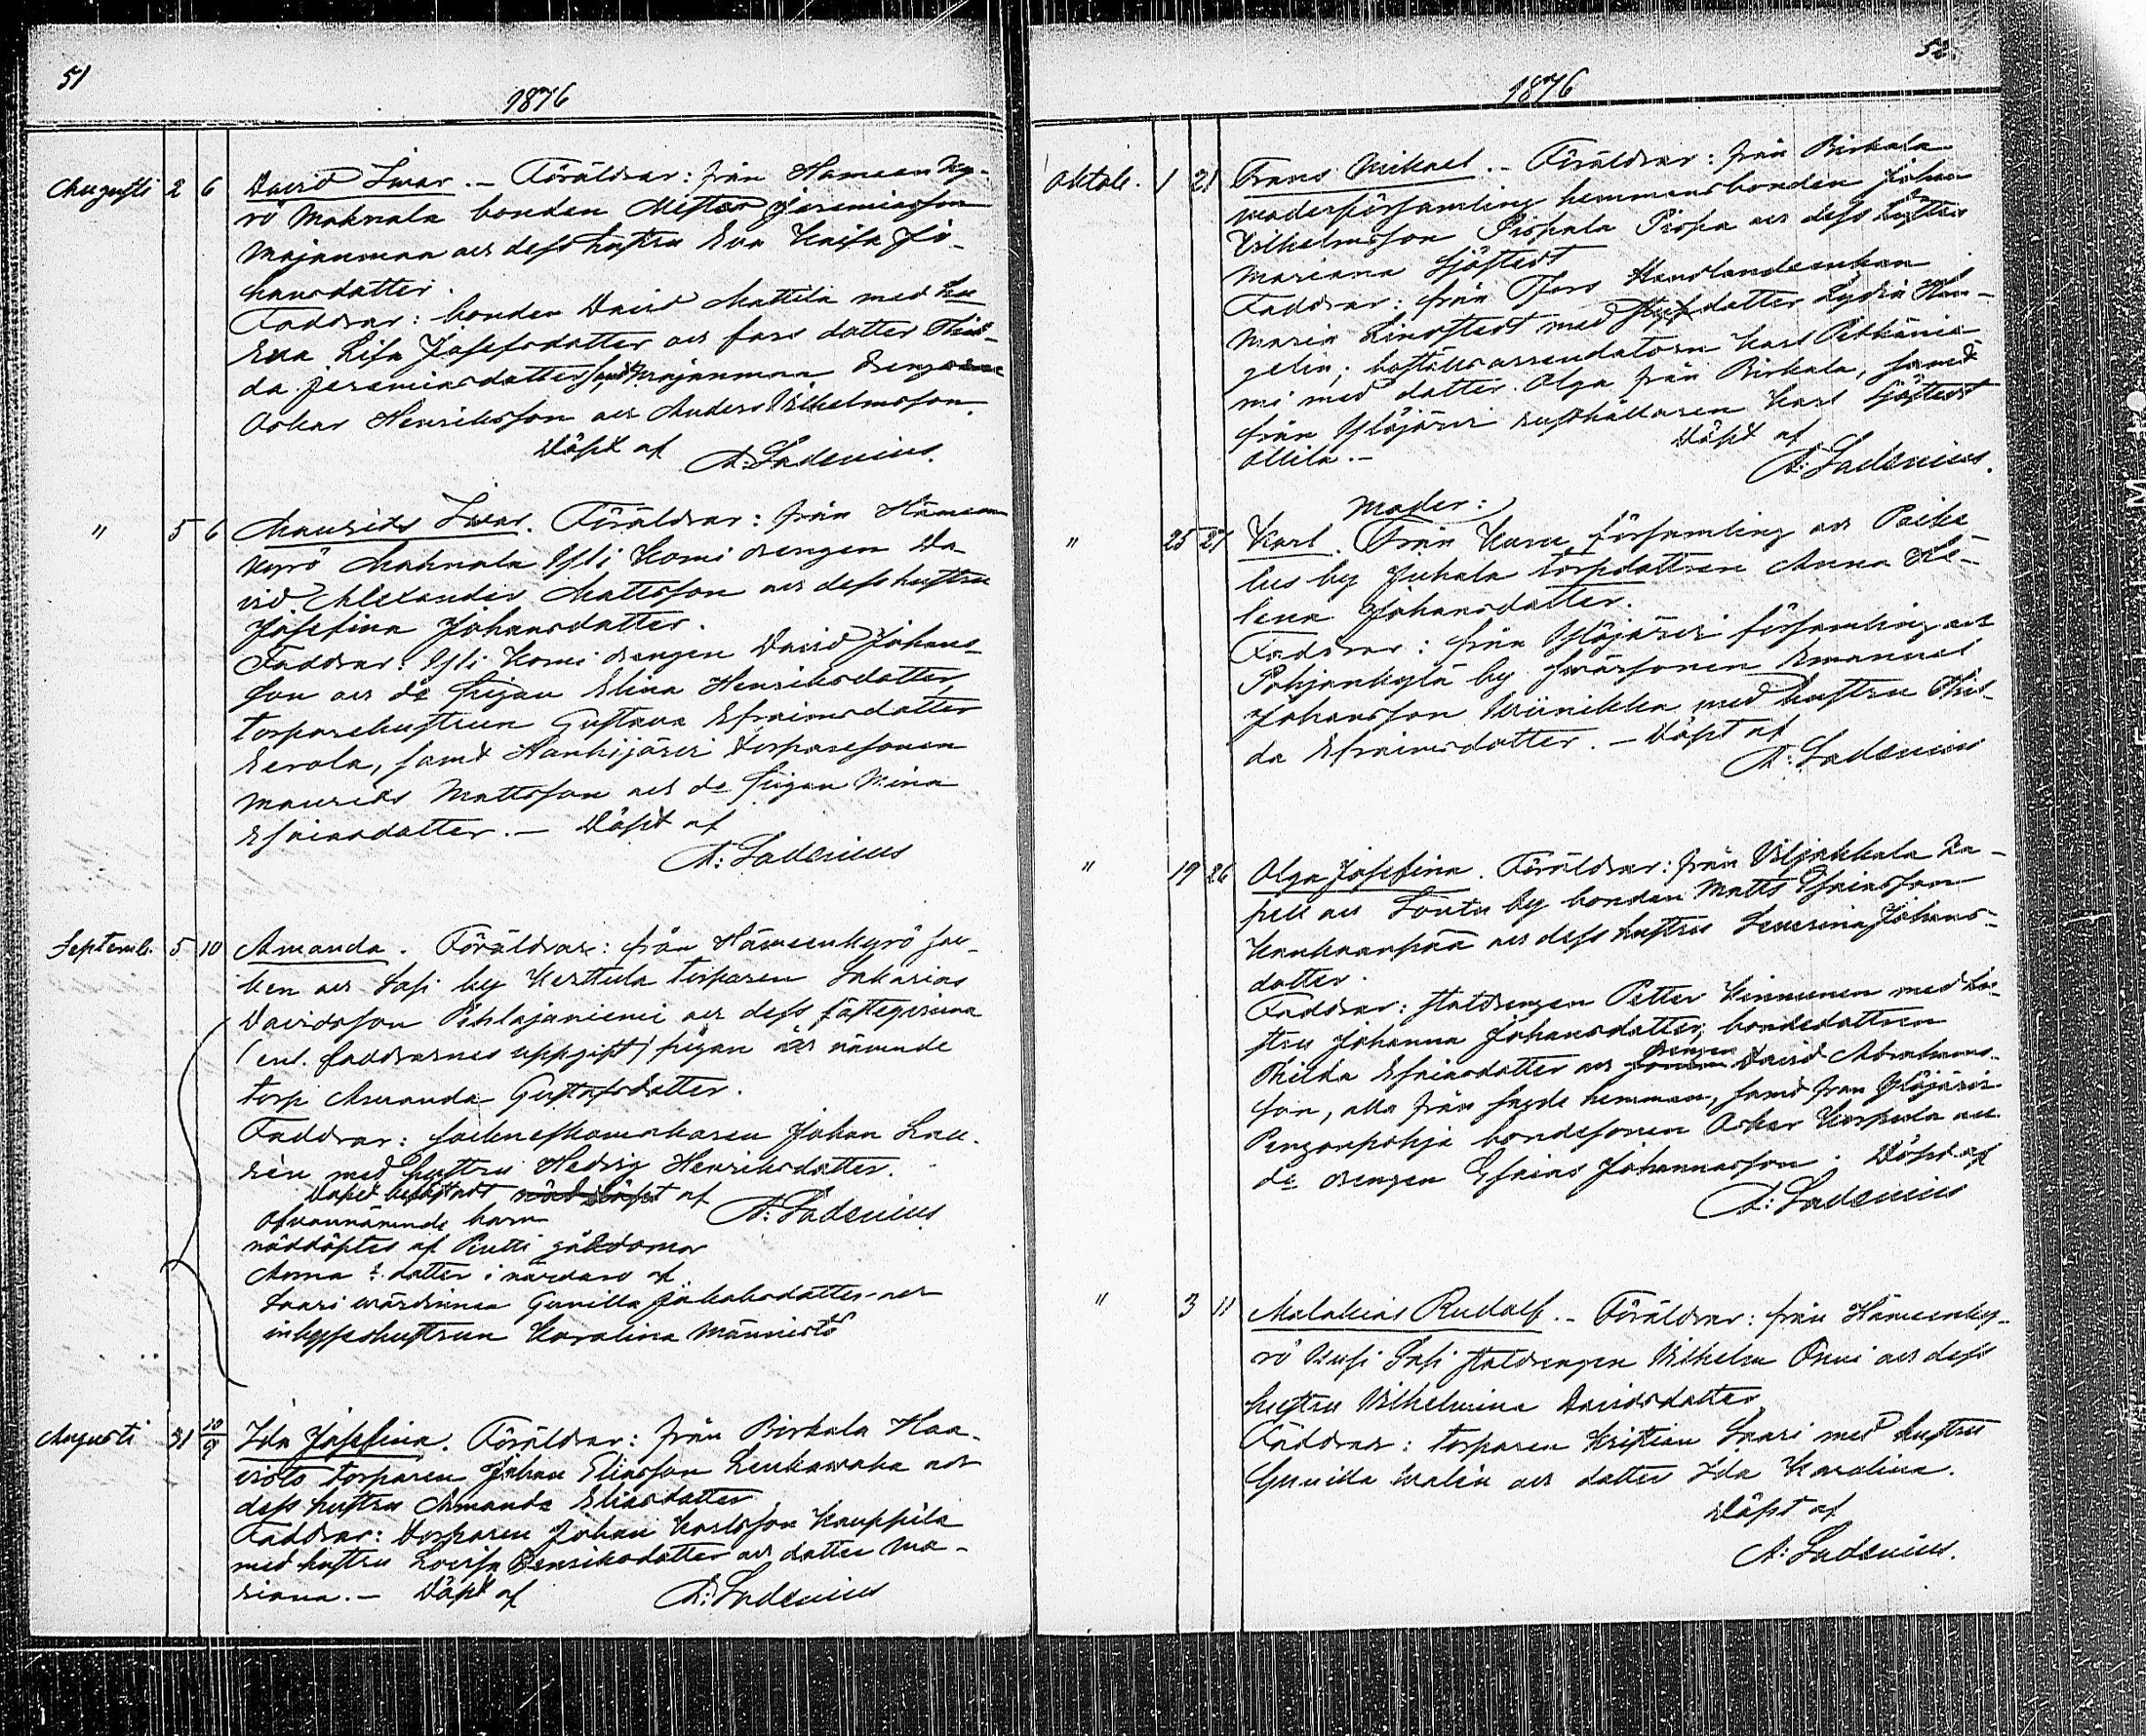 51
1876
Augusti 2 6 David Iwar. - Föräldrar: från Hämeen Ky-
rö Mahnala bonden Mester Jeremiasson
Majanmaa och dess hustru Eva Kaisa Jo-
hansdatter.
Faddrar: bonden David Mattila med hu
Eva Lisa Josefsdatter och fars datter Thil-
da Jeremiasdatter samt Majanmaa
Oskar Henriksson och Anders Wilhelmsson.
Döpt af A: Ladenius.
" 5 6 Maurits Iwar. Föräldrar: från Hämeen
kyrö Mahnala Isli Komi drengen Da-
vid Alexander Mattsson och dess hustru
Josefina Johansdatter.
Faddrar: Isli Komi drengen David Johans-
son och do pigan Elina Henriksdatter
torparehustrun Gustava Efraimsdatter
Eerola, samt Hanhijärvi torparesonen
Maurits Mattsson och do pigan Mina
Efraimsdatter. - Döpt af
A: Ladenius
Septemb. 5 10 Amanda. Föräldrar: från Hämeenkyrö soc-
ken och Sasi by Kerttula torparen Sakarias
Davidsson Pihlajaniemi och dess fästeqvinna
(enl. faddrarnes uppgift) pigan å nämnde
torp Amanda Gustafsdatter.
Faddrar: sockneskomakaren Johan Lau-
rén med hustru Hedvig Henriksdatter.
Döpet bekräftadt nöddöpt af A: Ladenius
Ofvannämnde barn
nöddöptes af Pentti
Anna datter i närvaro af
Saari värdinna Gunilla Jakobsdatter och
inhyseshustrun Karolina Männistö
Augusti 31 10/9 Ida Josefina. Föräldrar: från Birkala Haa-
visto torparen Johan Eliasson Leukawaha och
dess hustru Amanda Eliasdatter
Faddrar: Torparen Johan Karlsson Kauppila
med hustru Lovisa Henriksdatter och datter Ma-
riana. - Döpt af A: Ladenius
52.
1876
Oktob. 1 21 Frans Mikael. - Föräldrar: från Birkala
moderförsamling hemmansbonden Johan
Wilhelmsson Pispala Pispa och dess hustru
Mariana Sjöstedt
Faddrar: från Tfors Handlandeenkan
Maria Lindstedt med datter Lydia Han-
gelin; boställsarrendatorn Karl
mi med datter Olga från Birkala, samt
från Ylöjärvi rusthållaren Karl Sjöstedt
Ollila. - Döpt af
A: Ladenius.
Moder:
" 25 27 Karl. Från Kuru församling och Paihe
lus by Juhala torpdattren Anna He-
lena Johansdatter.
Faddrar: från Ylöjärvi församling och
Pohjankylä by svärsonen Emanuel
Johansson Wiinikka med hustru Thil-
da Efraimsdatter. - Döpt af
A: Ladenius
" 19 26 Olga Josefina. Föräldrar: från Viljakkala ka-
pell och Lontu by bonden Matts Efraimsson
Kankaanpää och dess hustru Severina Johans-
datter.
Faddrar: statdrengen Petter Kinnunen med hu-
stru Johanna Johansdatter; bondedattren
Thilda Efraimsdatter och drengen David Abrahams-
son, alla från sagde hemman, samt från Ylöjärvi
Pengonpohja bondesonen Oskar Korpula och
do drengen Efraim Johannasson. Döpt af
A: Ladenius
" 3 11 Malakias Rudolf. - Föräldrar: från Hämeenky-
rö Uusi Sasi statdrengen Wilhelm Onni och dess
hustru Wilhelmina Davidsdatter
Faddrar: torparen Kristian Saari med hustru
Gunilla Walén och datter Ida Karolina.
Döpt af
A: Ladenius.